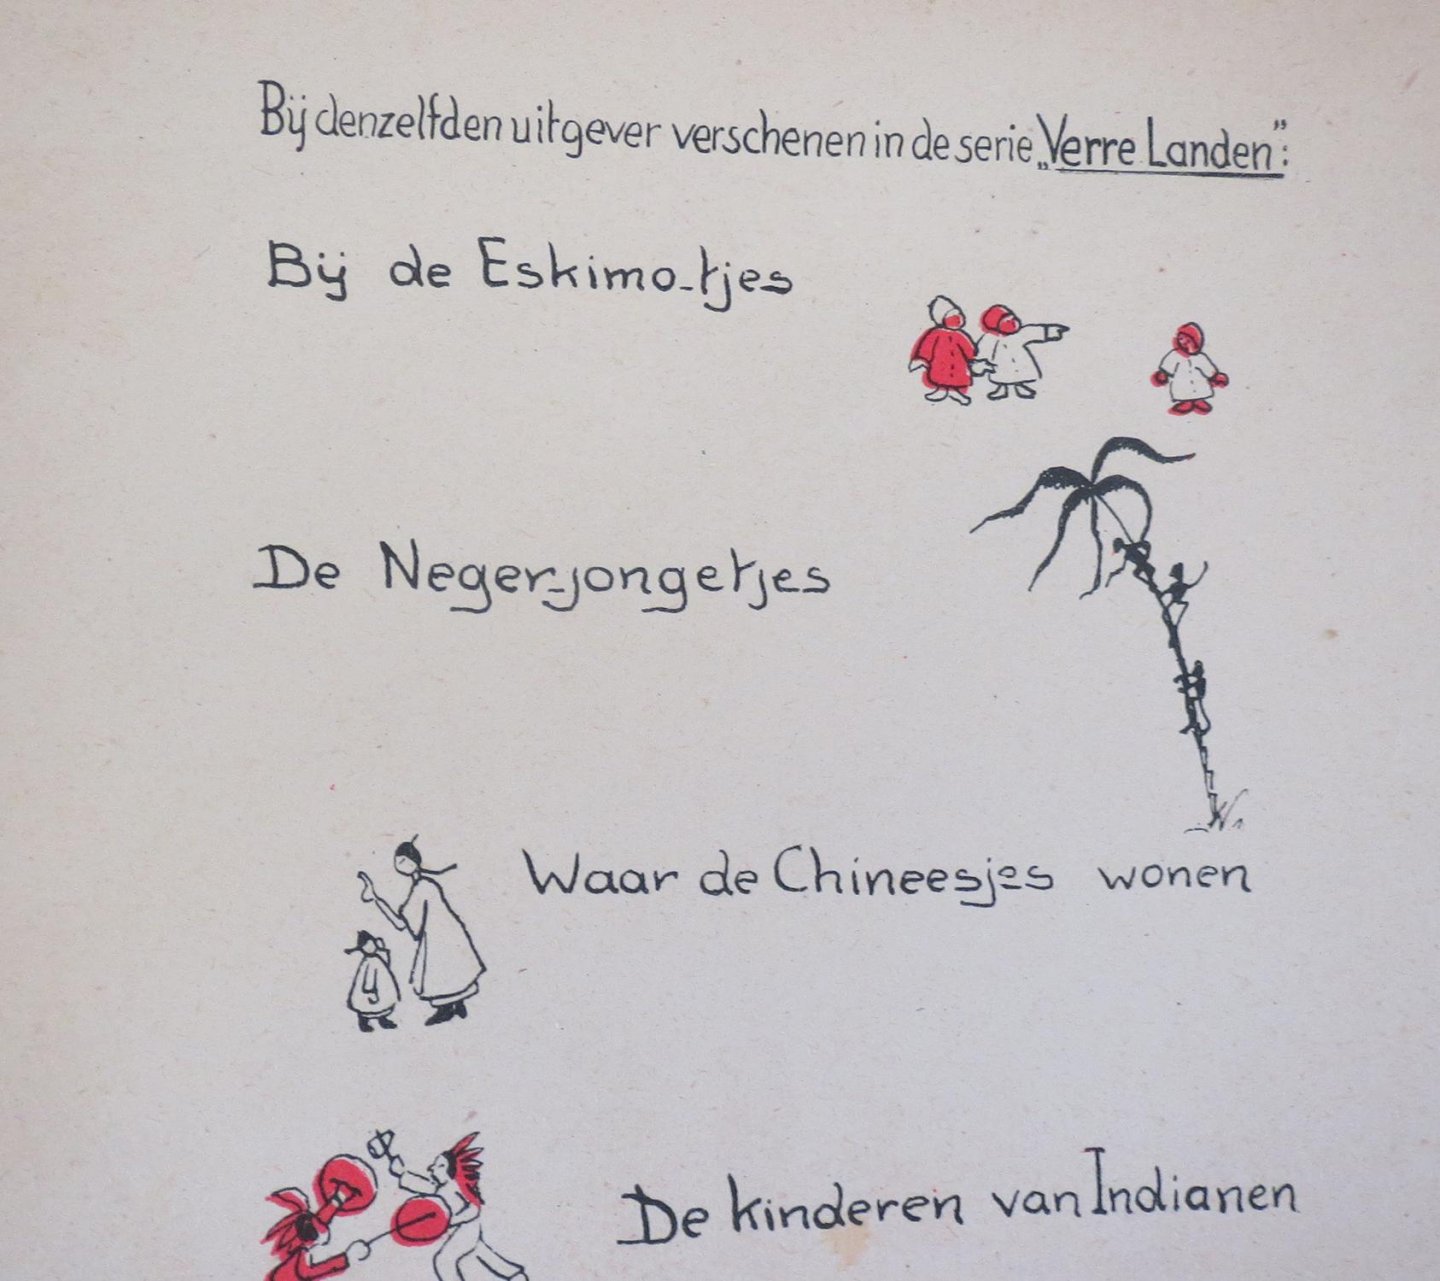 Bij denzelfden uitgever verschenen in de serie „Verre Landen”:
Bij de Eskimo-tjes
De Neger-jongetjes
Waar de Chineesjes wonen
De kinderen van Indianen